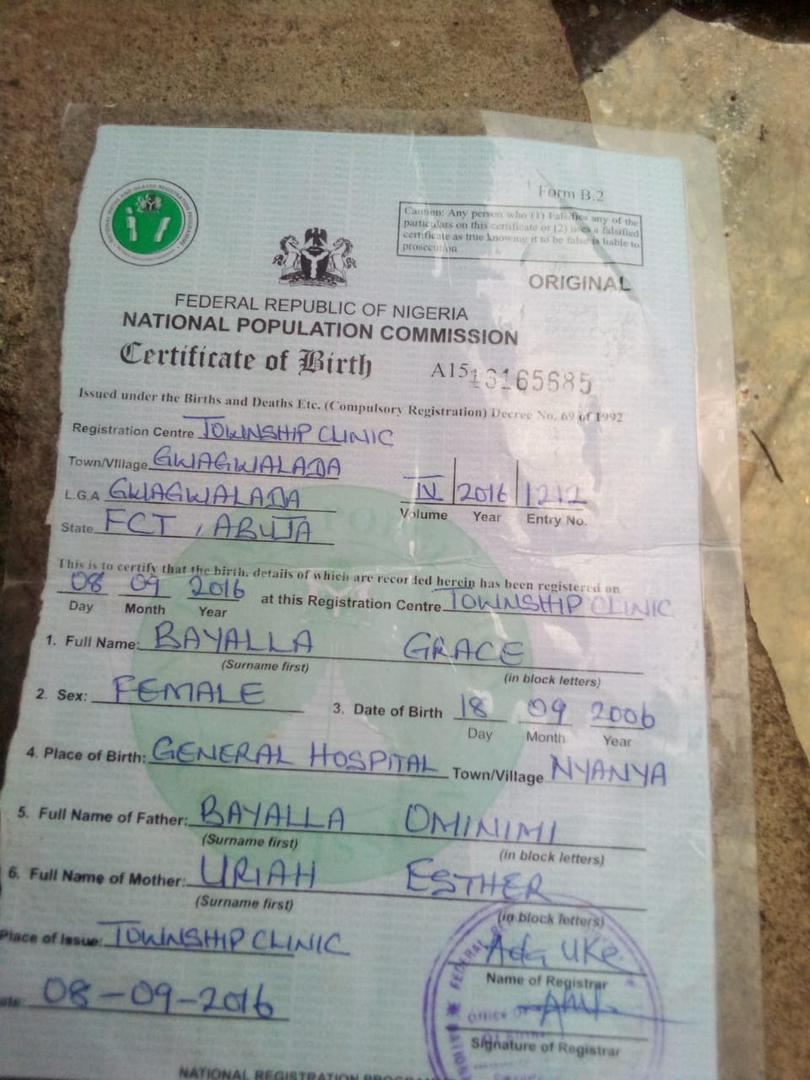 Form B.2
Caution: Any person who (1) Falsifies any of the
particulars on this certificate or (2) uses a falsified
certificate as true knowing it to be false is liable to
prosecution
ORIGINAL
FEDERAL REPUBLIC OF NIGERIA
NATIONAL POPULATION COMMISSION
Certificate of Birth A15 13165685
Issued under the Births and Deaths Etc. (Compulsory Registration) Decree No. 69 of 1992
Registration Centre TOWNSHIP CLINIC
Town/Village GWAGWALADA
L.G.A GWAGWALADA IV 2016 1212
Volume Year Entry No.
State FCT, ABUJA
This is to certify that the birth, details of which are recorded herein has been registered on
08 09 2016 at this Registration Centre TOWNSHIP CLINIC
Day Month Year
1. Full Name: BAYALLA GRACE
(Surname first) (in block letters)
2. Sex: FEMALE 3. Date of Birth 18 09 2006
Day Month Year
4. Place of Birth: GENERAL HOSPITAL Town/Village NYANYA
5. Full Name of Father: BAYALLA OMINIMI
(Surname first) (in block letters)
6. Full Name of Mother: URIAH ESTHER
(Surname first) (in block letters)
Place of Issue: TOWNSHIP CLINIC
Name of Registrar
08-09-2016
Signature of Registrar
NATIONAL REGISTRATION